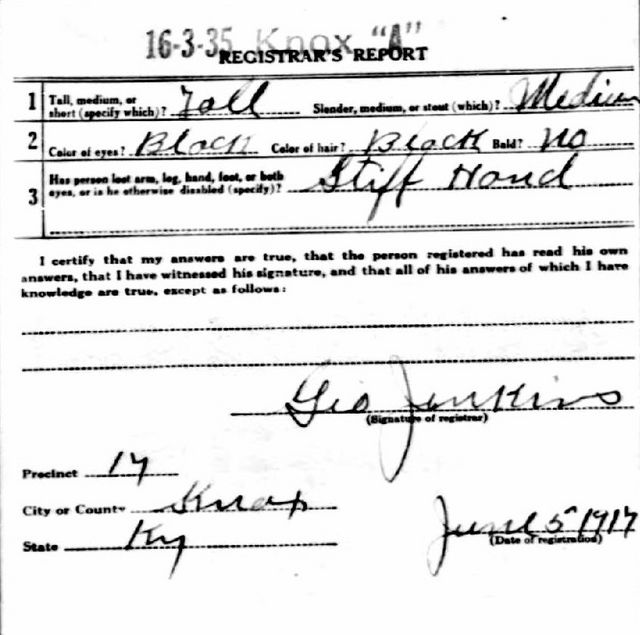 16-3-35 Knox "A"
REGISTRAR'S REPORT
1 Tall, medium, or short (specify which)? Tall Slender, medium, or stout (which)? Medium
2 Color of eyes? Black Color of hair? Black Bald? No
3 Has person lost arm, leg, hand, foot, or both eyes, or is he otherwise disabled (specify)? Stiff Hand
I certify that my answers are true, that the person registered has read his own
answers, that I have witnessed his signature, and that all of his answers of which I have
knowledge are true, except as follows:
Geo Jenkins
(Signature of registrar)
Precinct 17
City or County Knox
State Ky
June 5 1917
(Date of registration)